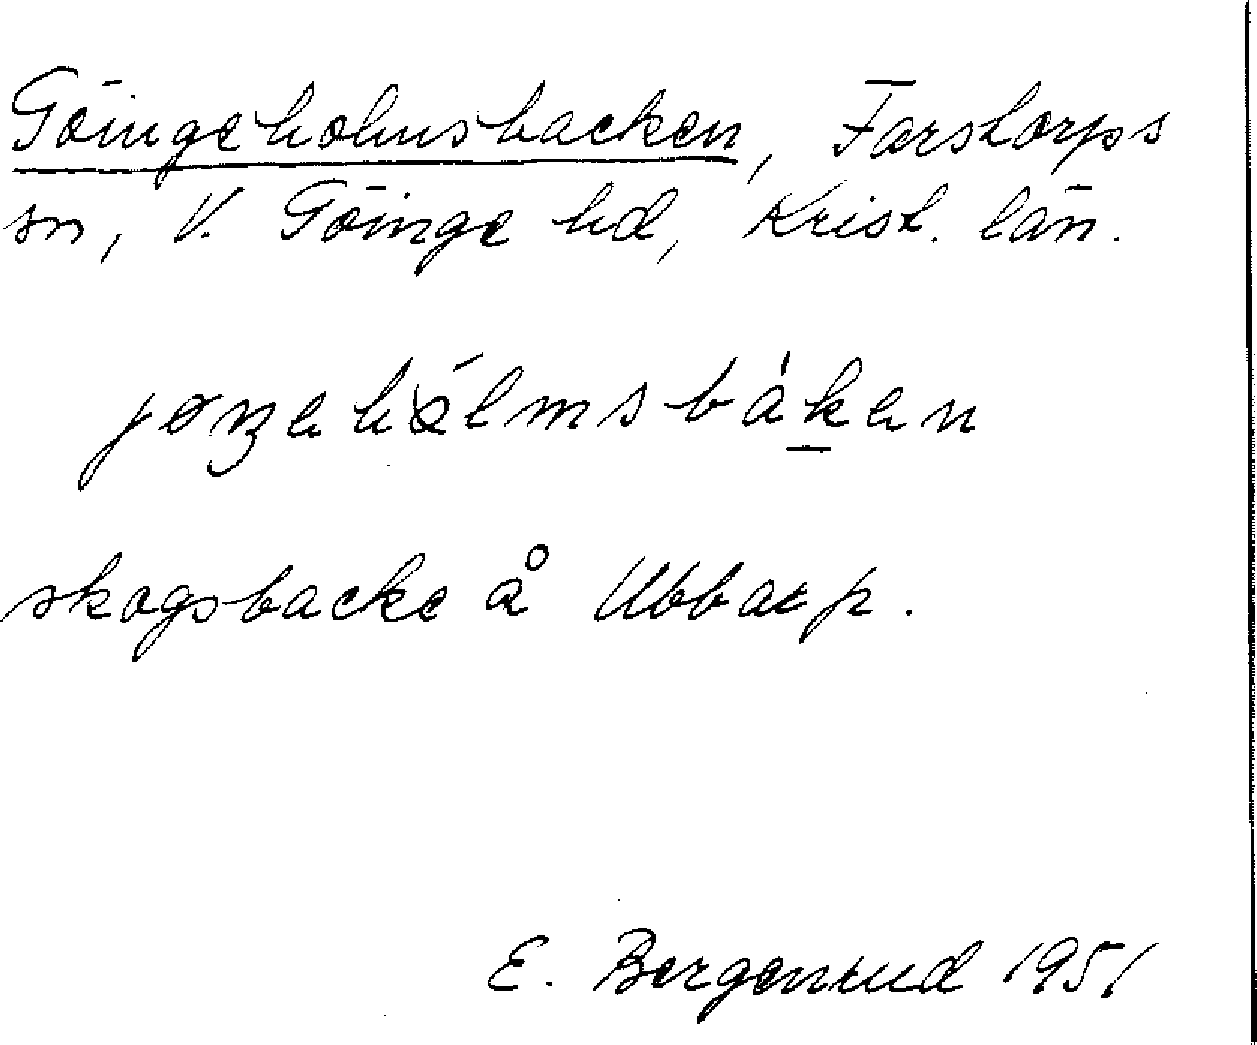 Göingeholmsbacken, Farstorps
sn, V. Göinge hd, Krist. län.
skogsbacke å Ubbarp.
E. Bergenrud 1951